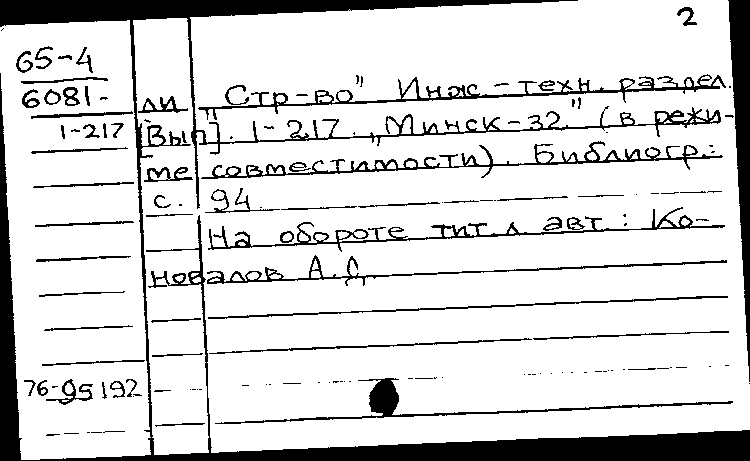 2
65-4
6081-
1-217
ли "Стр-во" Инж.-техн. раздел.
[Вып]. 1-217. „Минск-32" (в режи-
ме совместимости). Библиогр.:
с. 94.
На обороте тит. л. авт.: Ко-
новалов А.С.
76-95192